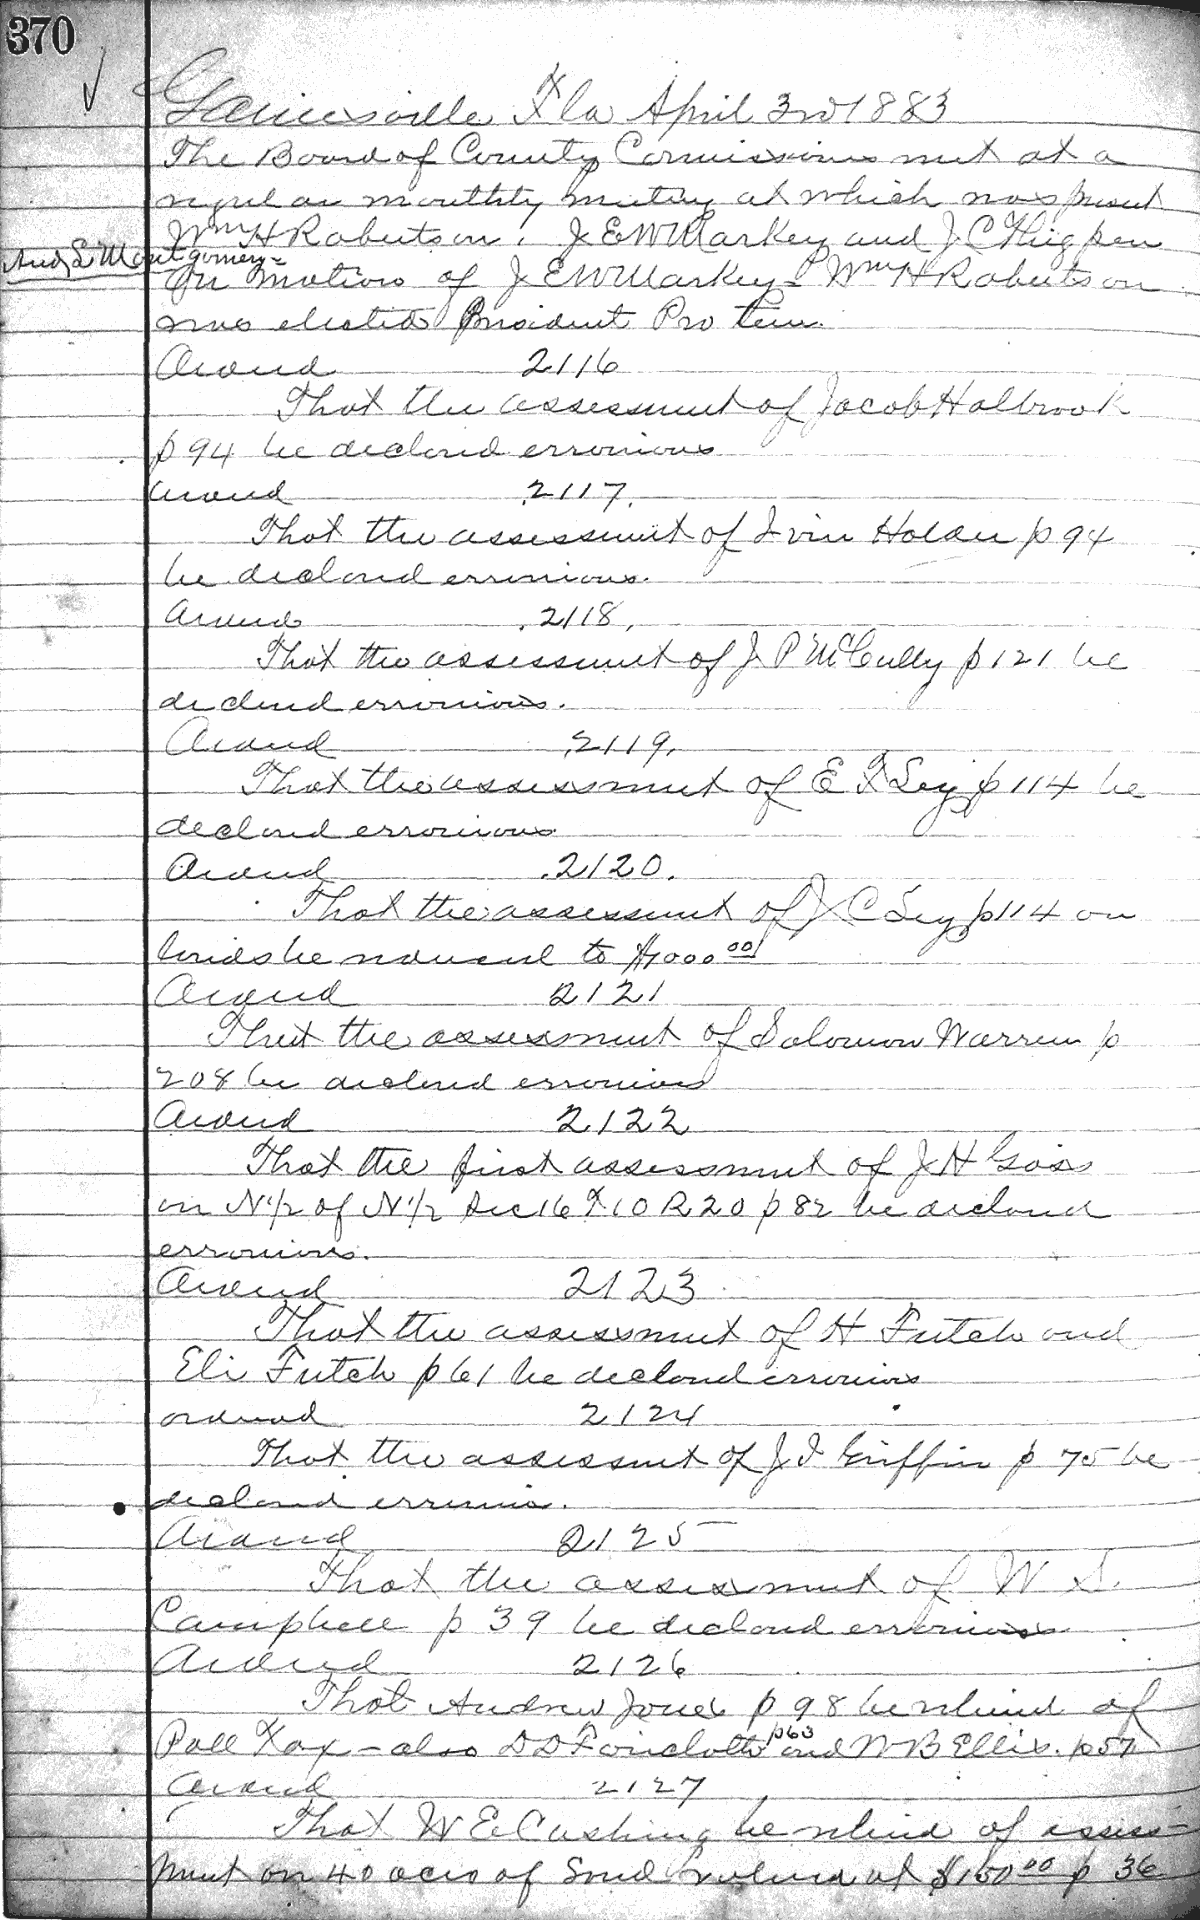 370
Gainesville Fla April 3rd 1883
The Board of County Comissioners met at a
regular monthly meeting at which was present
Wm H Robertson. J E W Markey and J. C Thigpen
And L Montgomery
On motion of J E W Markey - Wm H Robertson
was elected President Pro tem.
Ordered 2116
That the assessment of Jacob Holbrook
p 94 be declared erronious
Ordered 2117.
That the assessment of Irvin Holder p 94
be declared erronious.
Ordered 2118.
That the assessment of J. P McCully p 121 be
declared erronious.
Ordered 2119.
That the assessment of E F Sey p 114 be
declared erronious
Ordered 2120.
That the assessment of J C Sey p 114 on
lands be reduced to $1000 00
Ordered 2121
That the assessment of Solomon Warren p
208 be declared erronious
Ordered 2122
That the first assessment of J H Goss
on N 1/2 of N 1/2 Sec 16 T 10 R 20 p 82 be declared
erronious.
Ordered 2123
That the assessment of H Futch and
Eli Futch p 61 be declared erronious
ordered 2124
That the assessment of J. I Griffin p 75 be
declared erronious.
Ordered 2125
That the assessment of W S.
Campbell p 39 be declared erronious
Ordered 2126
That Andrew Jones p 98 be relieved of
Poll Tax - also D D Faircloth p 60 and W B Ellis. p 57
Ordered 2127
That W E Cushing be relieved of assess-
ment on 40 acres of land valued at $150 00 p 36